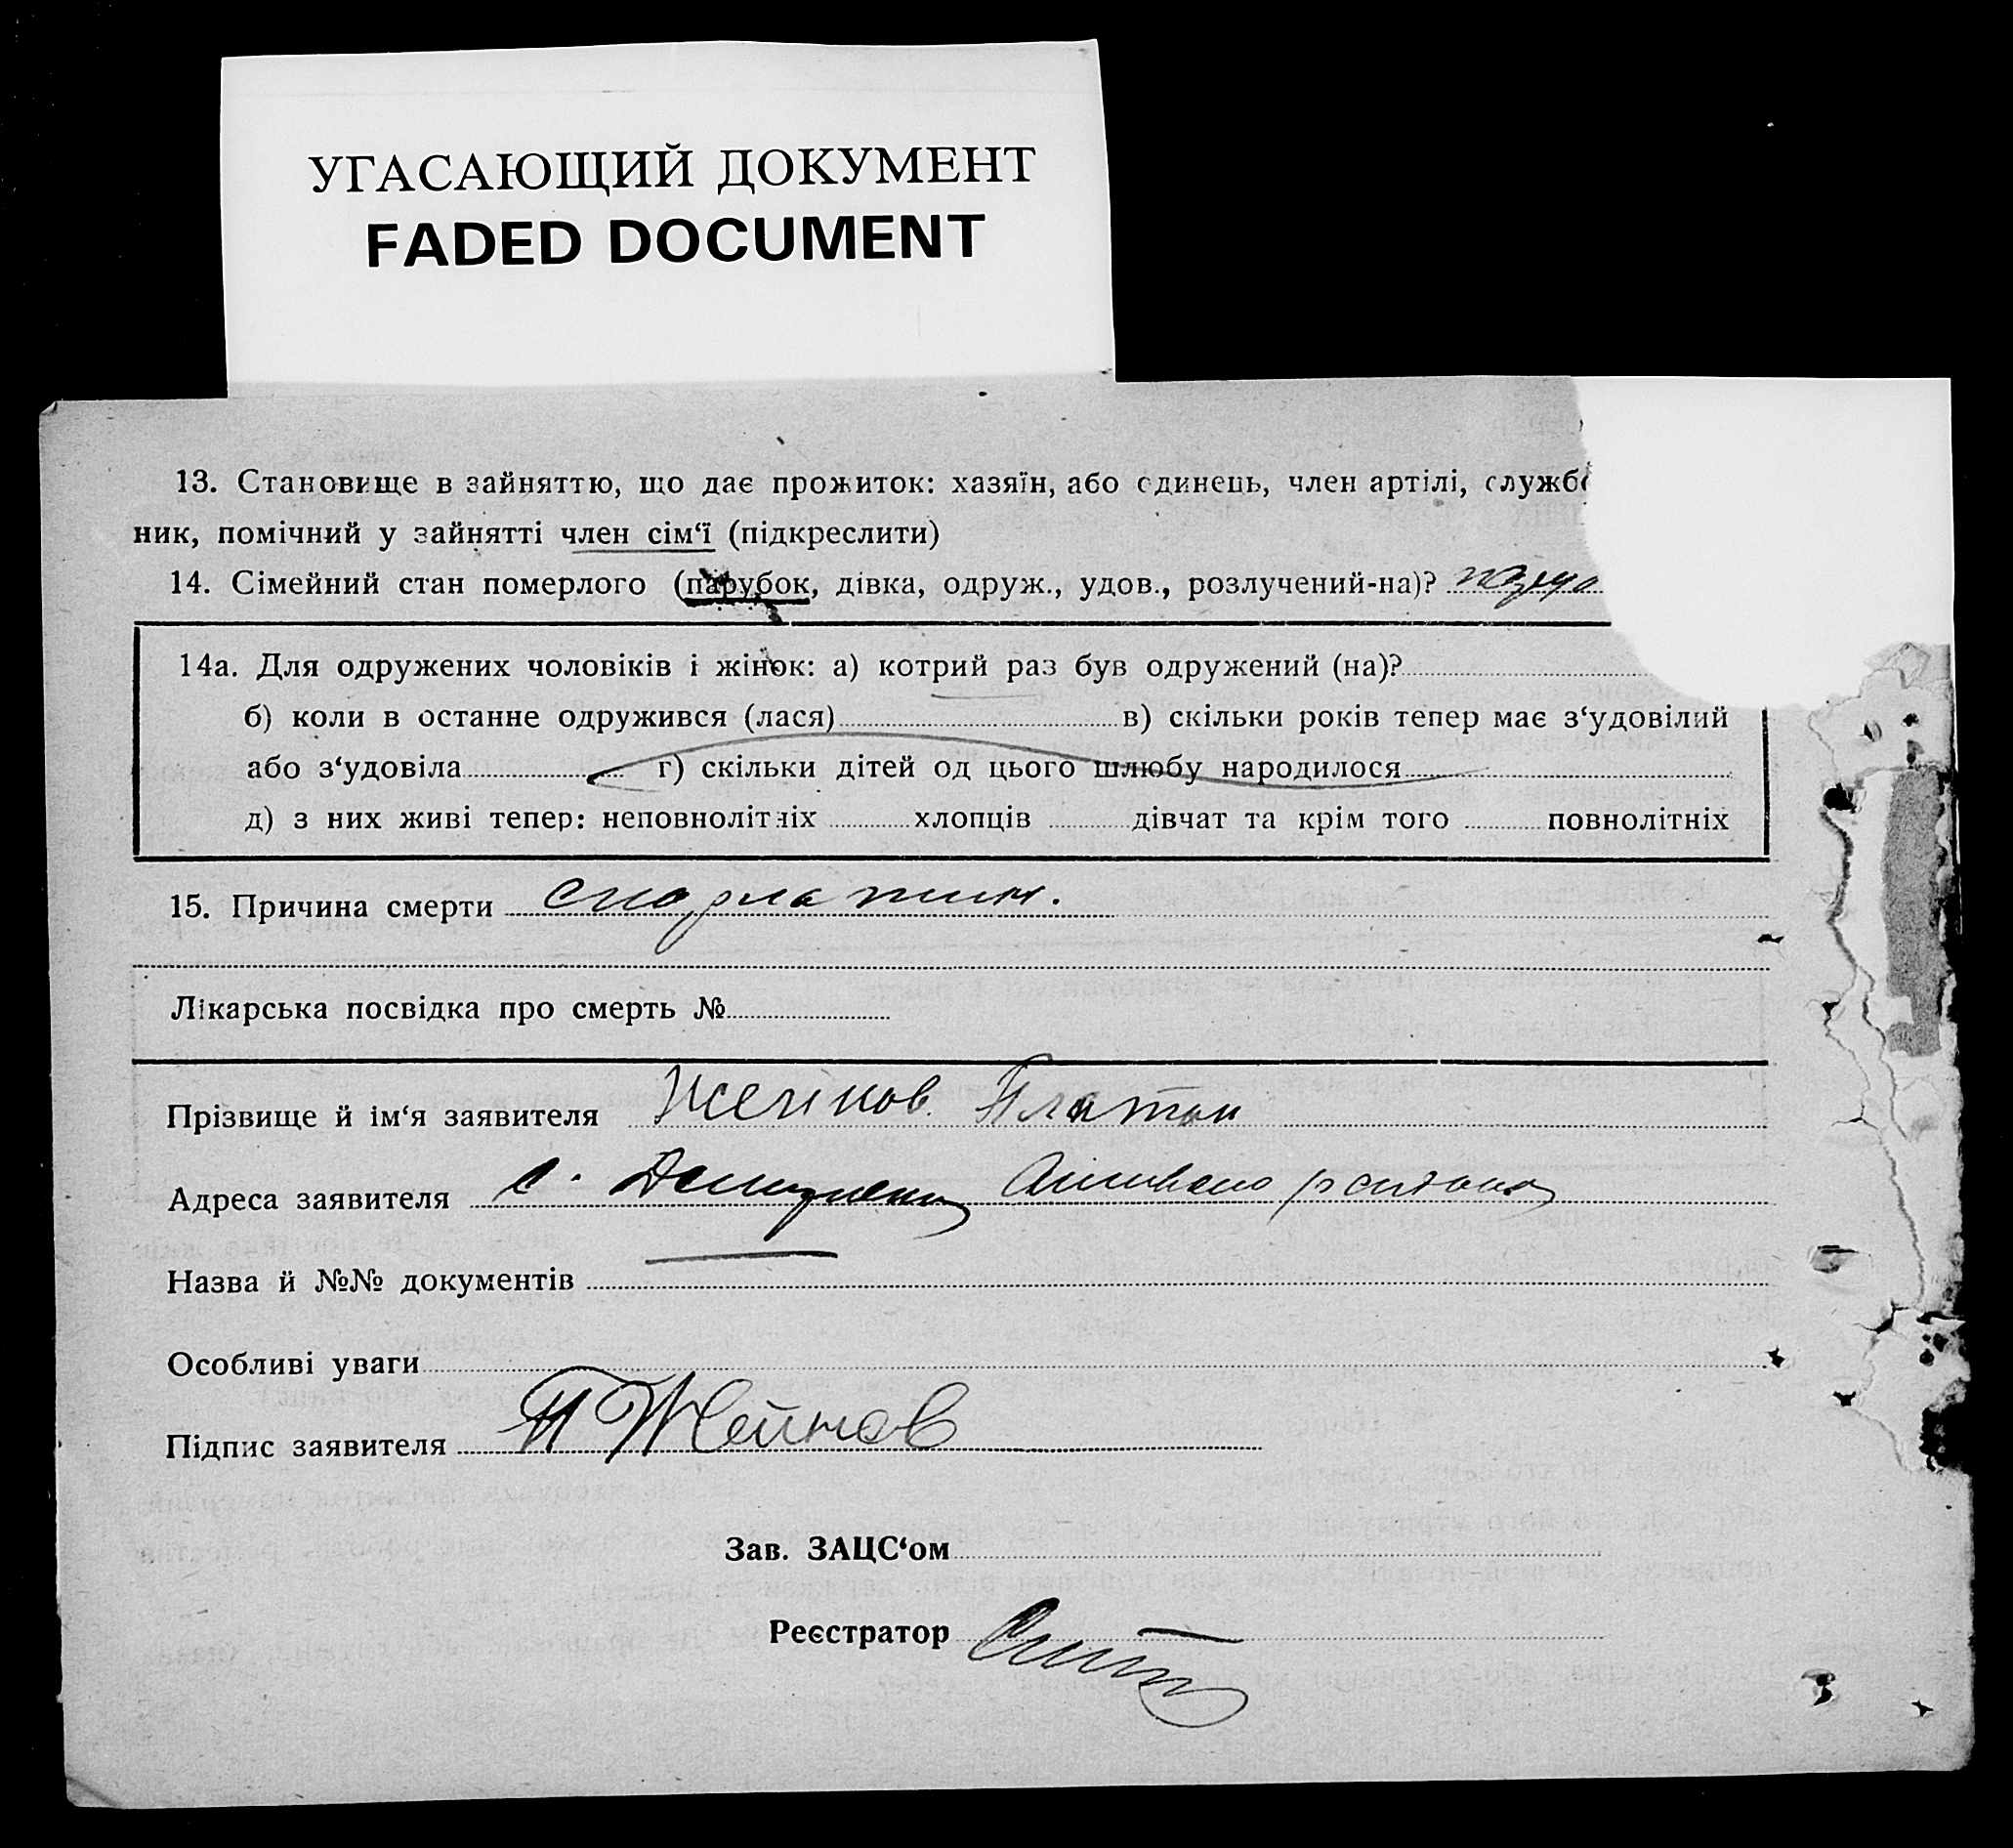 УГАСАЮЩИЙ ДОКУМЕНТ
FADED DOCUMENT
13. Становище в зайняттю, що дає прожиток: хазяїн, або єдинець, член артілі, службо
ник, помічний у зайнятті член сім‘ї (підкреслити)
14. Сімейний стан померлого (парубок, дівка, одруж., удов., розлучений-на)?
14а. Для одружених чоловіків і жінок: а) котрий раз був одружений (на)?
б) коли в останне одружився (лася) в) скільки років тепер має з‘удовілий
або з‘удовіла г) скільки дітей од цього шлюбу народилося
д) з них живі тепер: неповнолітніх хлопців дівчат та крім того повнолітніх
15. Причина смерти скарлатин.
Лікарська посвідка про смерть №
Прізвище й ім‘я заявителя Жейнов Платон
Адреса заявителя с.
Назва й №№ документів
Особливі уваги
Підпис заявителя П Жейнов
Зав. ЗАЦС‘ом
Реєстратор